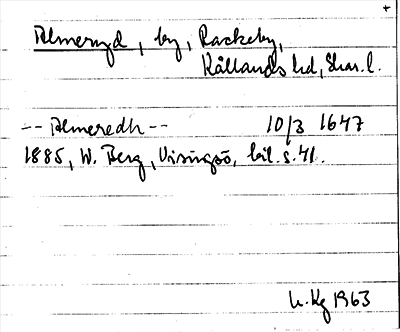 +
Almeryd, by, Rackeby,
Kållands hd, Skar. l.
-- Almeredh -- 10/3 1647
1885, W. Berg, Visingsö, bil. s. 41.
1963